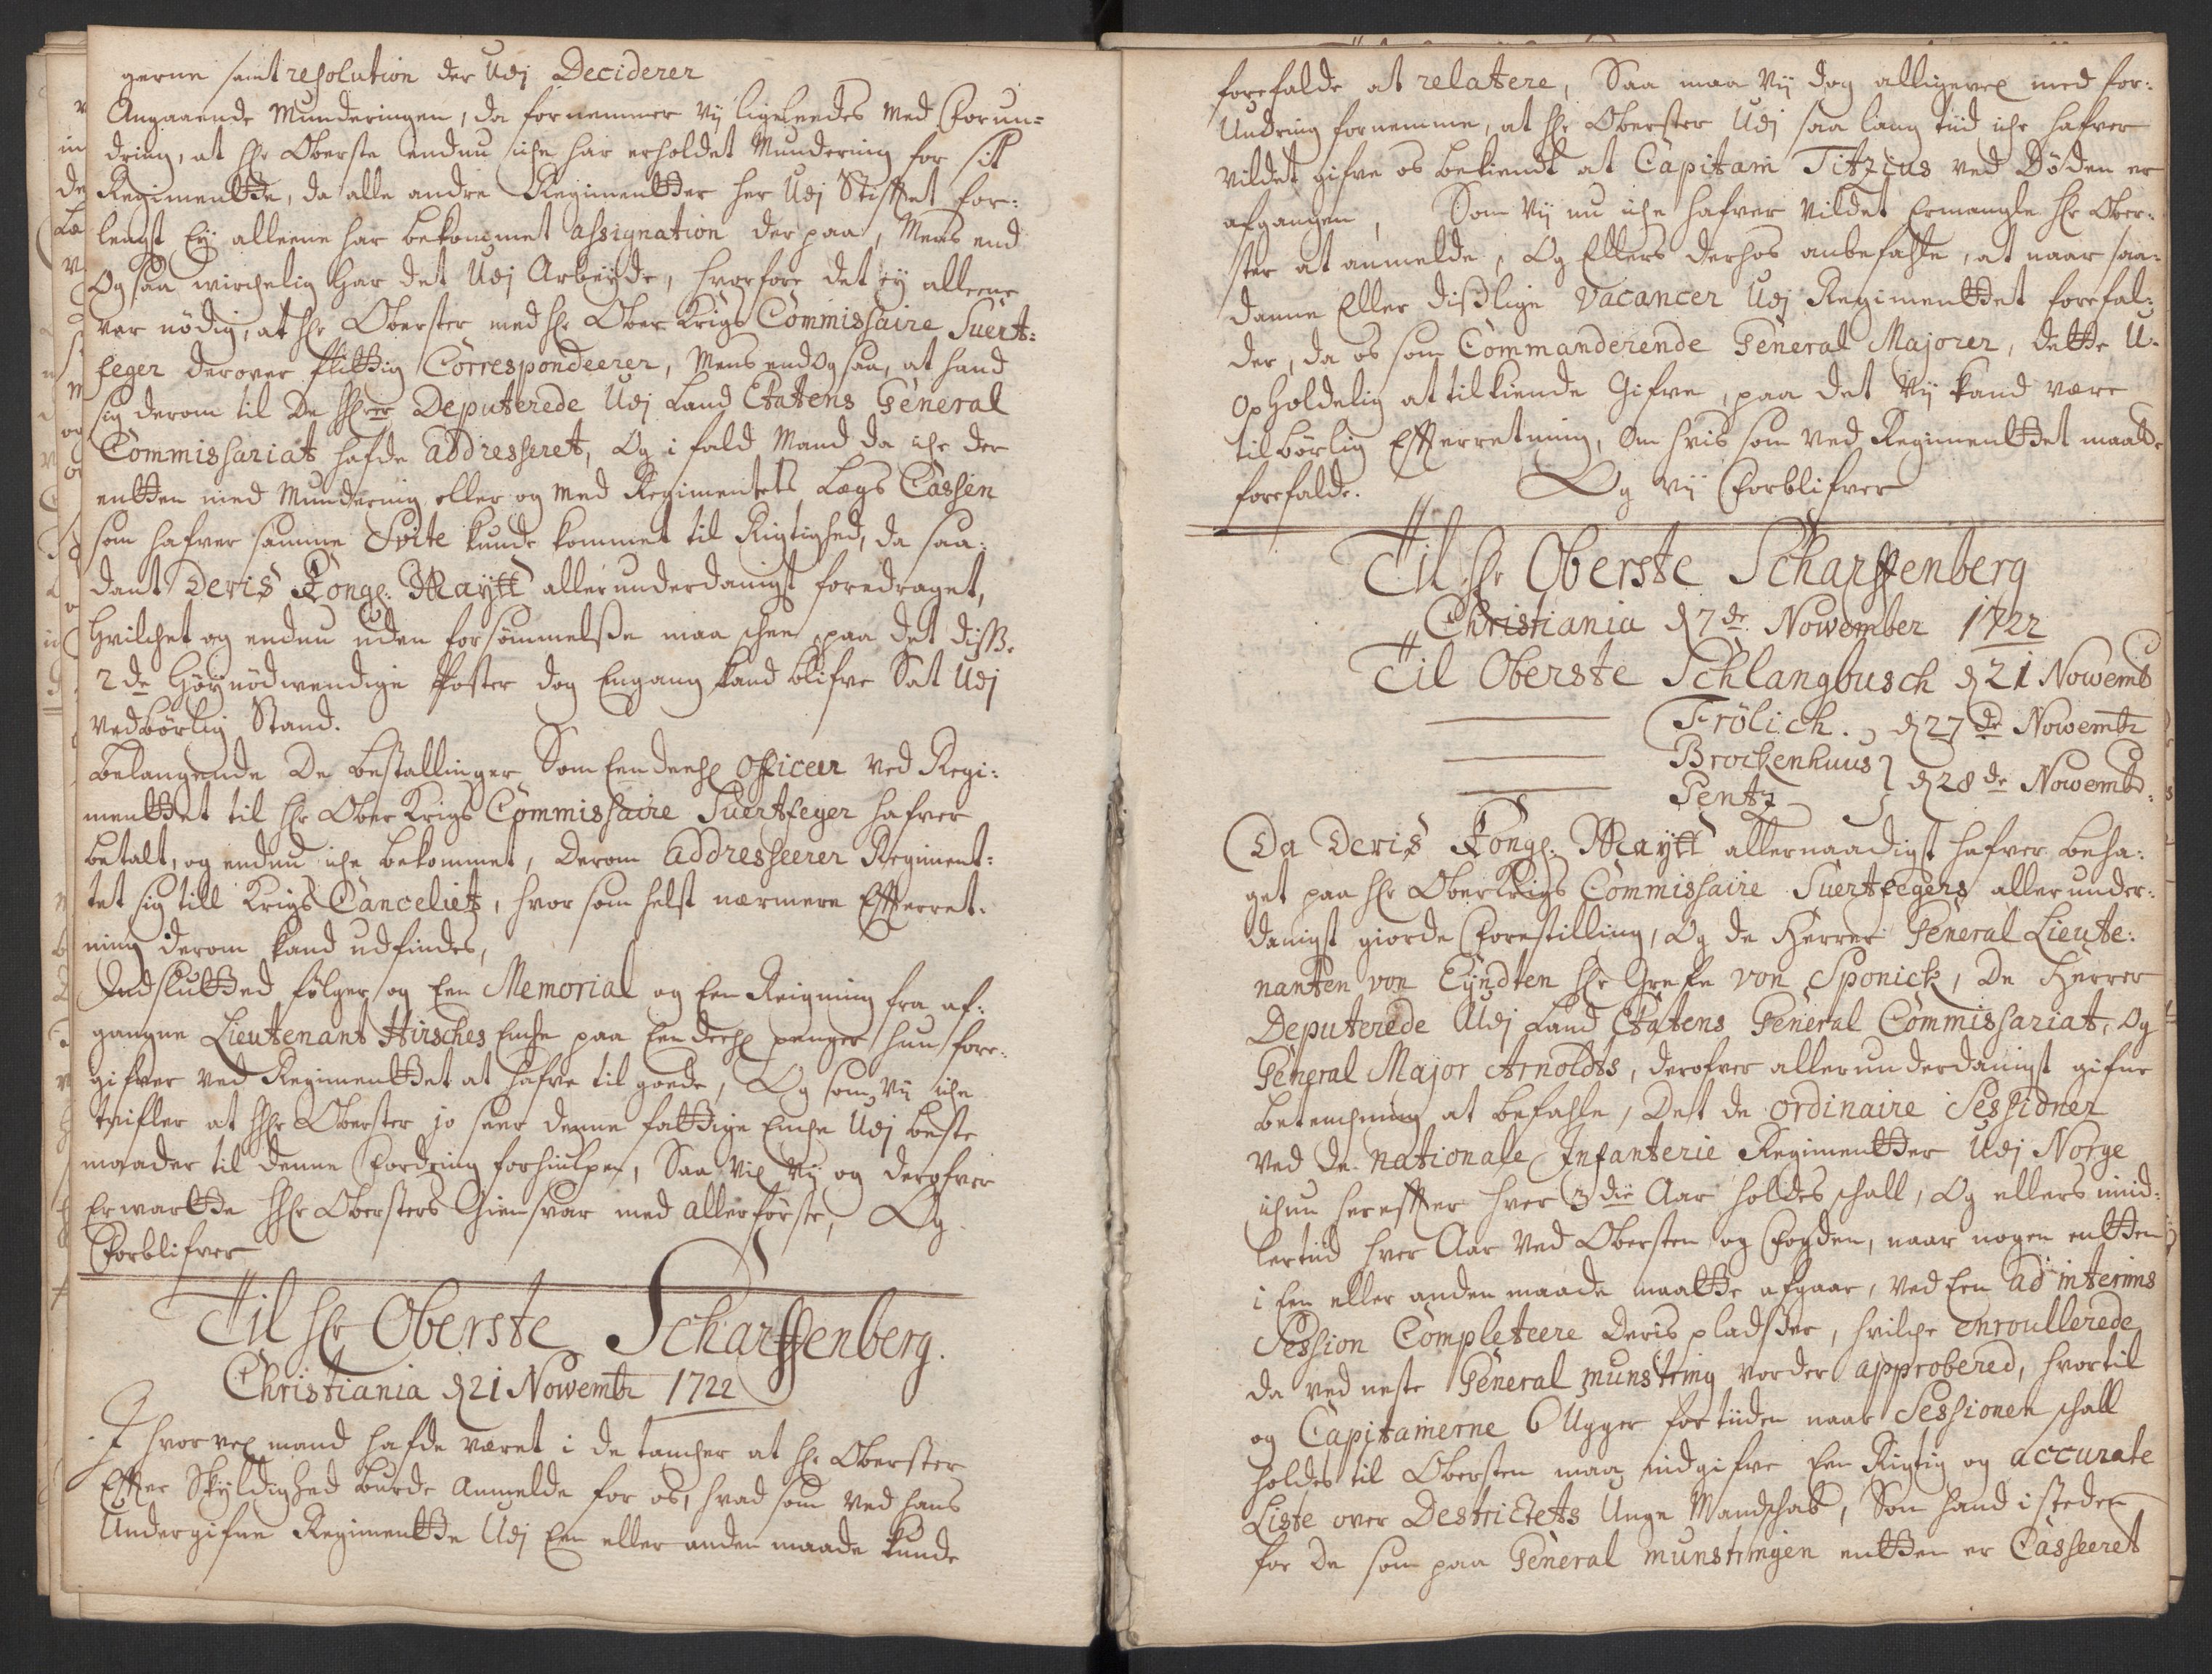 gerne samt resolution der Udj Deciderer
Angaaende Munderingen, da fornemmer Vij ligeleedes med Forun-
dring, at Hr Oberste endnu iche har erholdet Mundering for sit
Regimentte, da alle andre Regimentter her Udj Stifftet for-
lengst Eÿ alleene har bekommet assignation der paa, Mens end
Og saa wirchelig har det Udj Arbeÿde, hvorfore det eÿ alleene
var nödig, at Hr Oberster med Hr Ober Krigs Commissaire Suert-
feger derover flittig Correspondeerer, Mens end og saa, at hand
sig derom til De Hrer Deputerede Udj Land Etatens General
Commissariat hafde addresseret, Og i fald Mand da iche der
entten med Mundering eller og med Regimentets Lægs Cassen
som hafver samme Svite kunde kommet til Rigtighed, da saa-
dant Deris Kongl: Maÿtt allerunderdanigst foredraget,
Hvilchet og endnu uden forsömmelse maa schee, paa det disse
2de Höÿnödwendige Poster dog Engang kand blifve Sat Udj
vedbörlig Stand.
Belangende De Bestallinger Som Een deel officeer ved Regi-
menttet til Hr Ober Krigs Commissaire Suertfeger hafver
betalt, og endnu iche bekommet, derom addresseerer Regiment-
tet sig till Krigs Canceliet, hvor som helst nærmere Efterret-
ning derom kand udfindes,
Indslutted fölger og Een Memorial og Een Reigning fra af-
gangne Lieutenant Hirsches Enche paa Een deel penger hun fore-
gifver ved Regimenttet at hafve til goede, Og som Vij iche
tvifler at Hr Oberster jo seer denne fattige Enche Udj beste
maader til denne Fordring forhiulpen, Saa vil Vÿ og derofver
Erwartte Hr Obersters Giensvar med allerförste, Og
Forblifver
Til Hr Oberste Scharffenberg.
Christiania d 21 Nowembr 1722
I hvorvel mand hafde været i de tancher at Hr Oberster
Effter Skÿldighed burde Anmelde for os, hvad som ved hans
Undergifne Regimentte Udj Een eller anden maade kunde
forefalde at relatere, Saa maa Vij dog alligevel med for-
Undring fornemme, at Hr Oberster Udj saa lang tiid iche hafver
vildet gifve os bekiendt at Capitain Titzius ved Döden er
afgangen, Som Vij nu iche hafver Vildet Ermangle Hr Ober-
ster at anmelde, Og Ellers derhos anbefahle, at naar saa-
danne Eller dislige Vacancer Udj Regimenttet forefal-
der, da os som Commanderende General Majorer, dette U-
opholdelig at tilkiende Gifve, paa det Vij kand være
tilbörlig Effterretning, Om hvis som ved Regimenttet maatte
forefalde. Og vij Forblifver
Til Hr Oberste Scharffenberg
Christiania d 7de Nowember 1722
Til Oberste Schlangbusch d 21 Nowemb
Frölich. d 27de Nowembr
Brockenhuus } d 28de Nowembr.
Gentz
Da Deris Kongl: Maÿtt allernaadigst hafver beha-
get paa Hr OberKrigs Commissaire Suertfegers allerunder-
danigst giorde Forestilling, Og de Herrer General Lieute-
nanten von Eÿndten Hr Grefe von Sponick, De Herrer
Deputerede Udj Land Etatens General Commissariat, Og
General Major Arnoldts, derofver allerunderdanigst gifne
betenchning at befahle, Det de ordinaire Sessioner
ved de nationale Infanterie Regimentter Udj Norge
ichun hereffter hver 3die Aar holdes schall, Og ellers imid-
lertiid hver Aar ved Obersten og Fogden, naar nogen entten
i Een eller anden maade maatte afgaar, ved Een ad interims
Session Completeere deris pladser, hvilche enroullerede
da ved neste General munstring vorder approbered, hvortil
og Capitainerne 6 Uger for tiiden naar Sessionen schall
holdes til Obersten maa indgifve Een Rigtig og accurate
Liste over Destrictets Unge Mandschab, Som hand i steden
for De som paa General munstringen entten er Casseeret